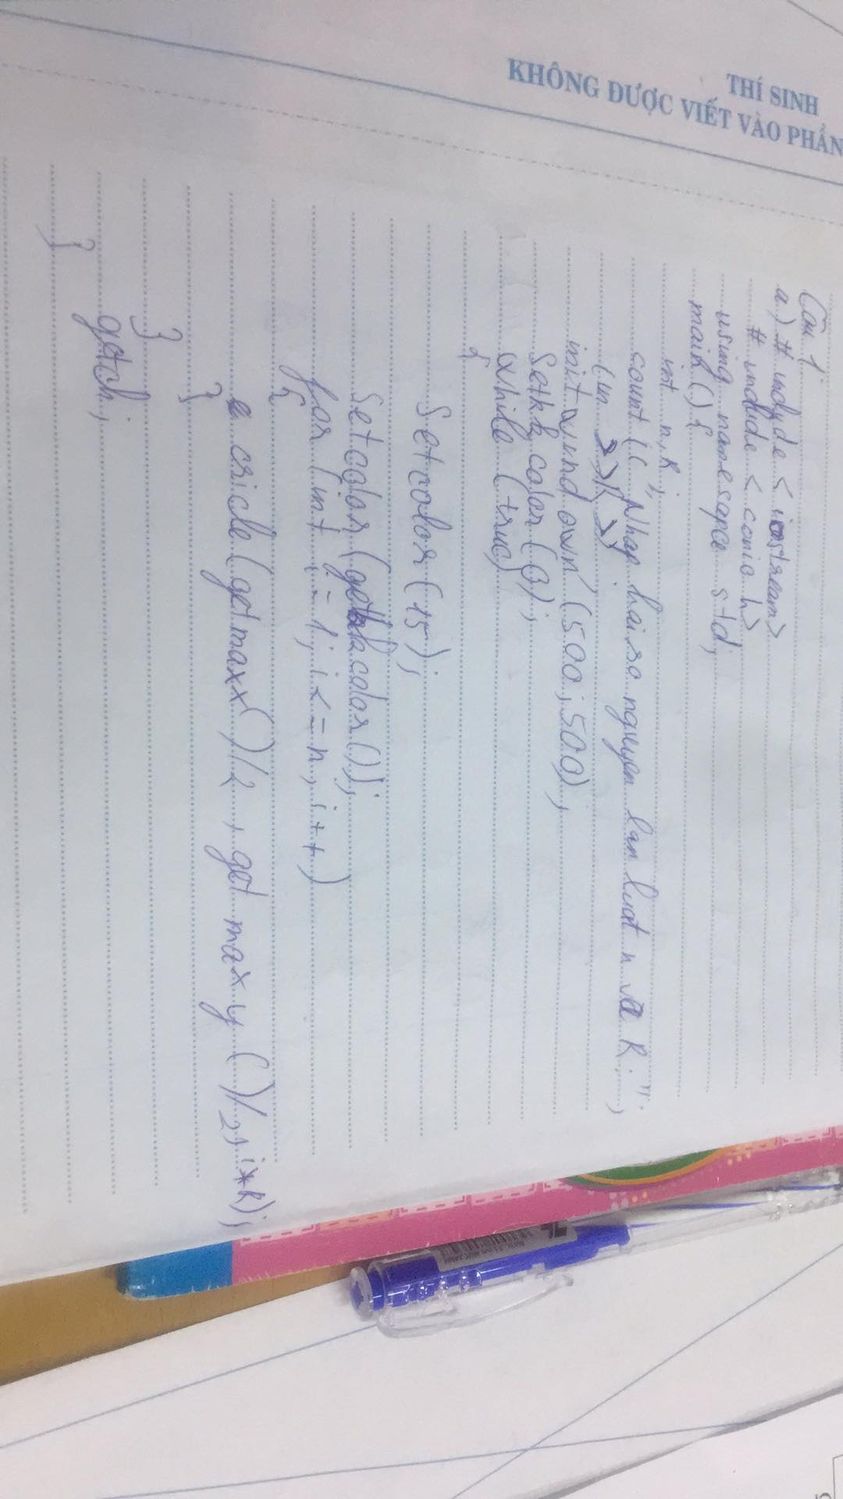 THÍ SINH
KHÔNG ĐƯỢC VIẾT VÀO PHẦN
Câu 1
a) # include < iostream>
# include < conio h>
using namesapce std;
main () {
int n, R;
count (( " Nhap hai so nguyen lan luot n và R: ";
Cin >>
init wind own (500; 500);
Setbk color (0);
while (true)
{
Set color (15);
Set color (getbkcolor());
for (int i = 1; i <= n; i++)
{
cricle (get maxx () /2, get max y () /2, i*R);
}
}
getch;
}